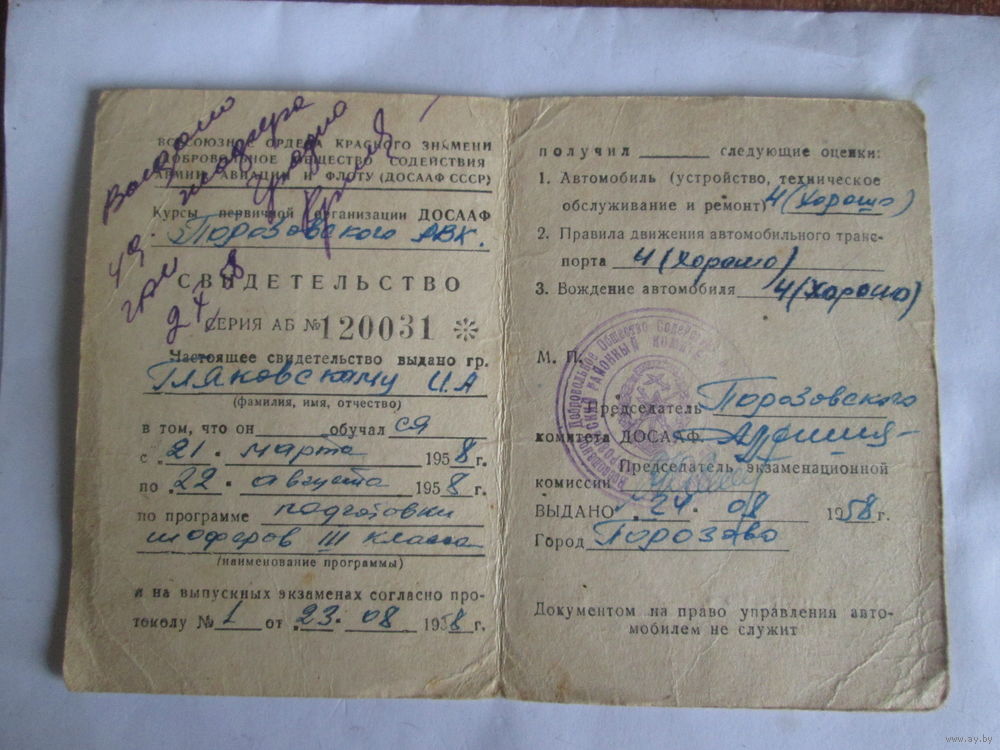 ВСЕСОЮЗНОЕ ОРДЕНА КРАСНОГО ЗНАМЕНИ
ДОБРОВОЛЬНОЕ ОБЩЕСТВО СОДЕЙСТВИЯ
АРМИИ АВИАЦИИ И ФЛОТУ (ДОСААФ СССР)
Курсы первичной организации ДОСААФ
Порозовского АВК.
СВИДЕТЕЛЬСТВО
СЕРИЯ АБ № 120031
Настоящее свидетельство выдано гр.
И.А
(фамилия, имя, отчество)
в том, что он обучался
с 21. марта 1958 г.
по 22. августа 1958 г.
по программе подготовки
шоферов III класса
/наименование программы/
и на выпускных экзаменах согласно про-
токолу № 1 от 23. 08 1958 г.
получил следующие оценки:
1. Автомобиль (устройство, техническое
обслуживание и ремонт) 4 (хорошо)
2. Правила движения автомобильного транс-
порта 4 (хорошо)
3. Вождение автомобиля 4 (хорошо)
М. П.
Председатель Порозовского
комитета ДОСААФ
Председатель экзаменационной
комиссии
ВЫДАНО "24" 08 1958 г.
Город Порозово
Документом на право управления авто-
мобилем не служит
www.ay.by